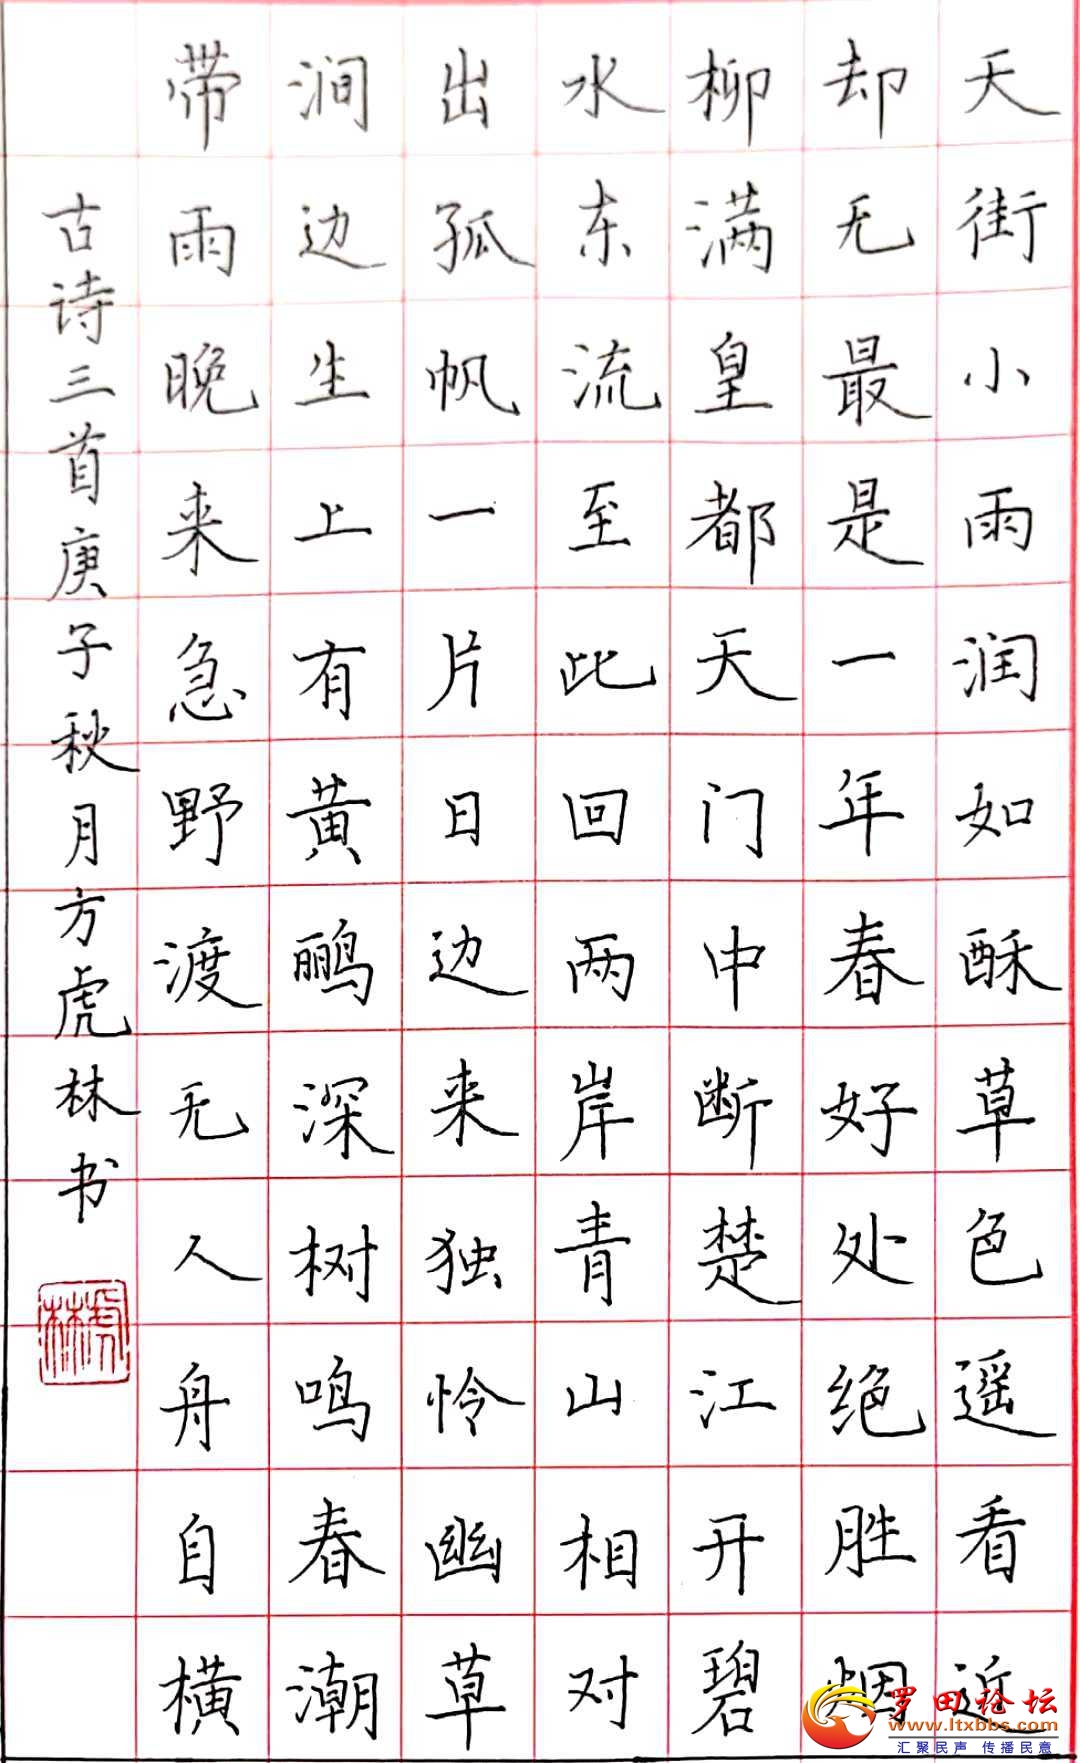 天街小雨润如酥草色遥看近
却无最是一年春好处绝胜烟
柳满皇都天门中断楚江开碧
水东流至此回两岸青山相对
出孤帆一片日边来独怜幽草
涧边生上有黄鹂深树鸣春潮
带雨晚来急野渡无人舟自横
古诗三首庚子秋月方虎林书
虎林
罗田论坛
www.ltxbbs.com
汇聚民声 传播民意